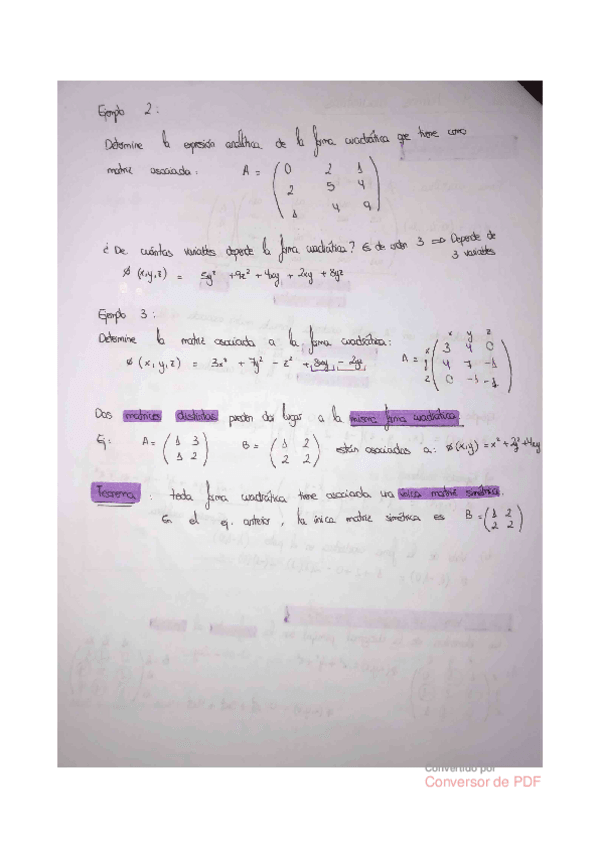 Ejemplo 2:
Determine la expresión analítica de la forma cuadrática que tiene como
matriz asociada: A = ( 0 2 1
2 5 4
1 4 9 )
¿ De cuántas variables depende la forma cuadrática? Es de orden 3 ⇒ Depende de
3 variables
ø (x,y,z) = 5y² + 9z² + 4xy + 2xy + 8yz
Ejemplo 3:
Determine la matriz asociada a la forma cuadrática:
x y z
ø (x, y, z) = 3x² + 7y² - z² + 8xy - 2yz A = x ( 3 4 0
y 4 7 -1
z 0 -1 -1 )
Dos matrices distintas pueden dar lugar a la misma forma cuadrática
Ej: A = ( 1 3 B = ( 1 2 están asociadas a: ø(x,y) = x² + 2y² + 4xy
1 2 ) 2 2 )
Teorema : toda forma cuadrática tiene asociada una única matriz simétrica.
En el ej. anterior, la única matriz simétrica es B = ( 1 2
2 2 )
Convertido por
Conversor de PDF